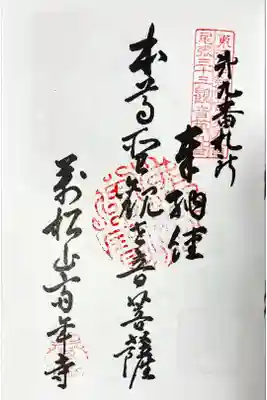 尾張三十三観音
第九番札所
奉納経
本尊聖観世音菩薩
萬松山斉年寺